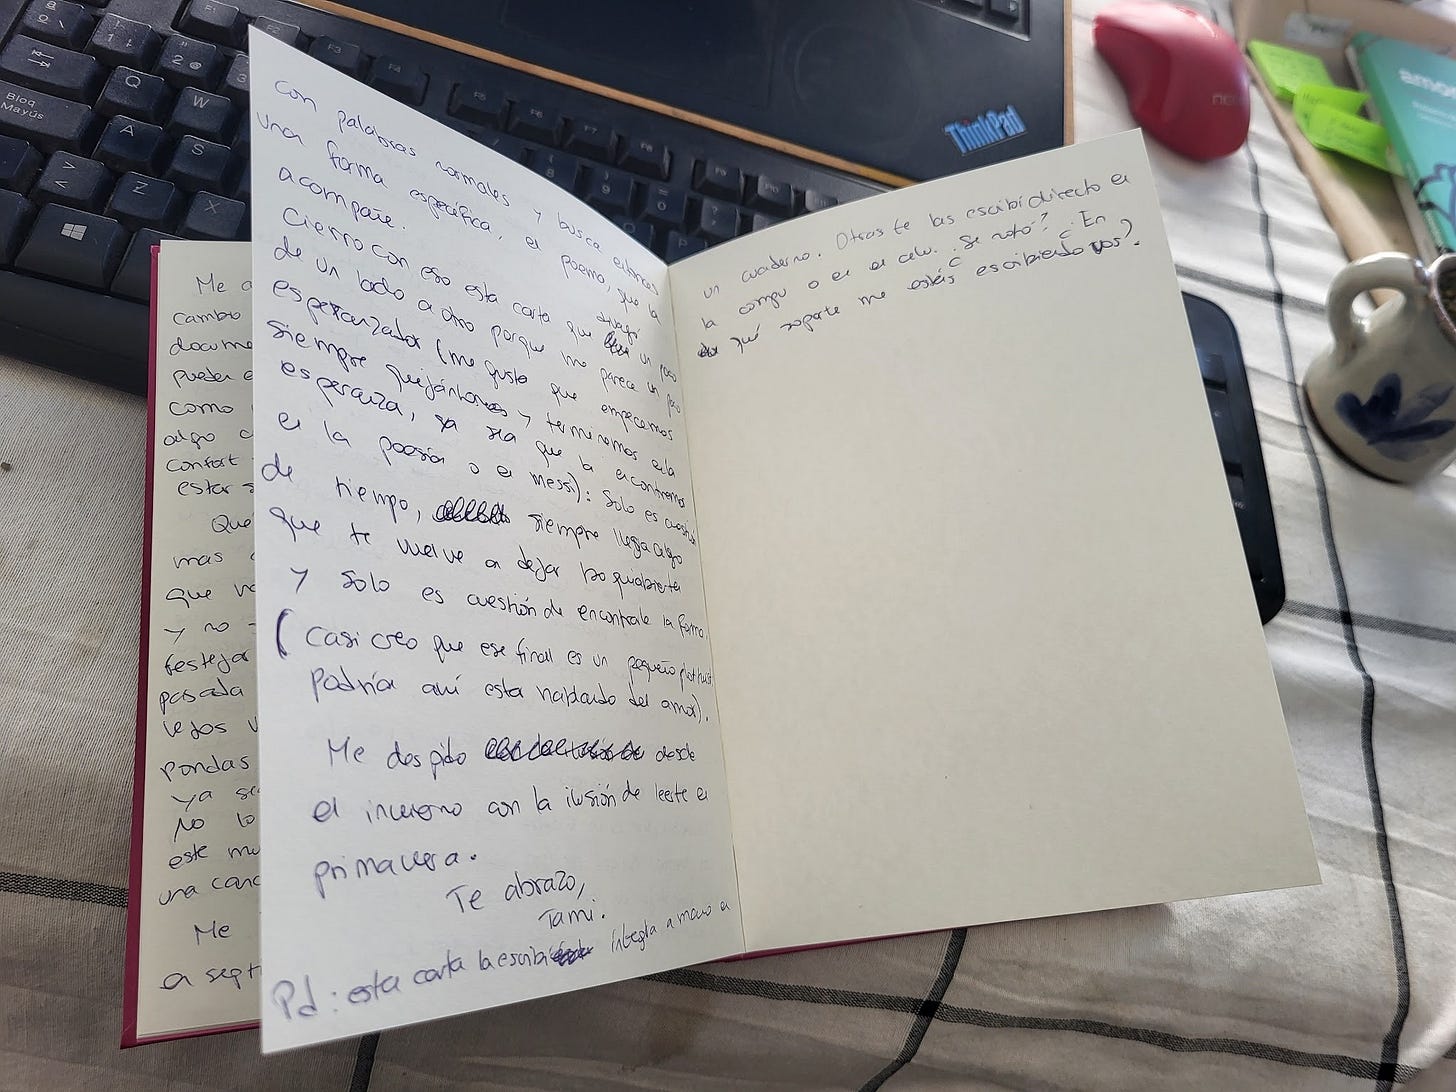 con palabras normales y busca entonces
una forma específica, el poema, que la
acompañe.
Cierro con eso esta carta que divagó un poco
de un lado a otro porque me parece un poco
esperanzador (me gusta que empecemos
siempre quejándonos y terminemos en la
esperanza, ya sea que la encontremos
en la poesía o en messi): Solo es cuestión
de tiempo, siempre llega algo
que te vuelve a dejar boquiabierta
y solo es cuestión de encontrarle la forma.
(Casi creo que ese final es un pequeño plot twist
podría ahí estar hablando del amor).
Me despido desde
el invierno con la ilusión de leerte en
primavera.
Te abrazo,
Tami.
Pd: esta carta la escribí íntegra a mano en
un cuaderno. Otras te las escribí directo en
la compu o en el celu. ¿Se notó? ¿En
qué soporte me estás escribiendo vos?
Me
cambio
docume
pueden e
como
algo c
confort
estar s
Que
mas
que
y no
festejar
pasada
lejos v
pondas
ya se
No lo
este mu
una canc
Me
a sept
ThinkPad
Bloq
Mayús
Q
W
A
S
Z
X
F1
F2
F3
F4
F5
F6
F7